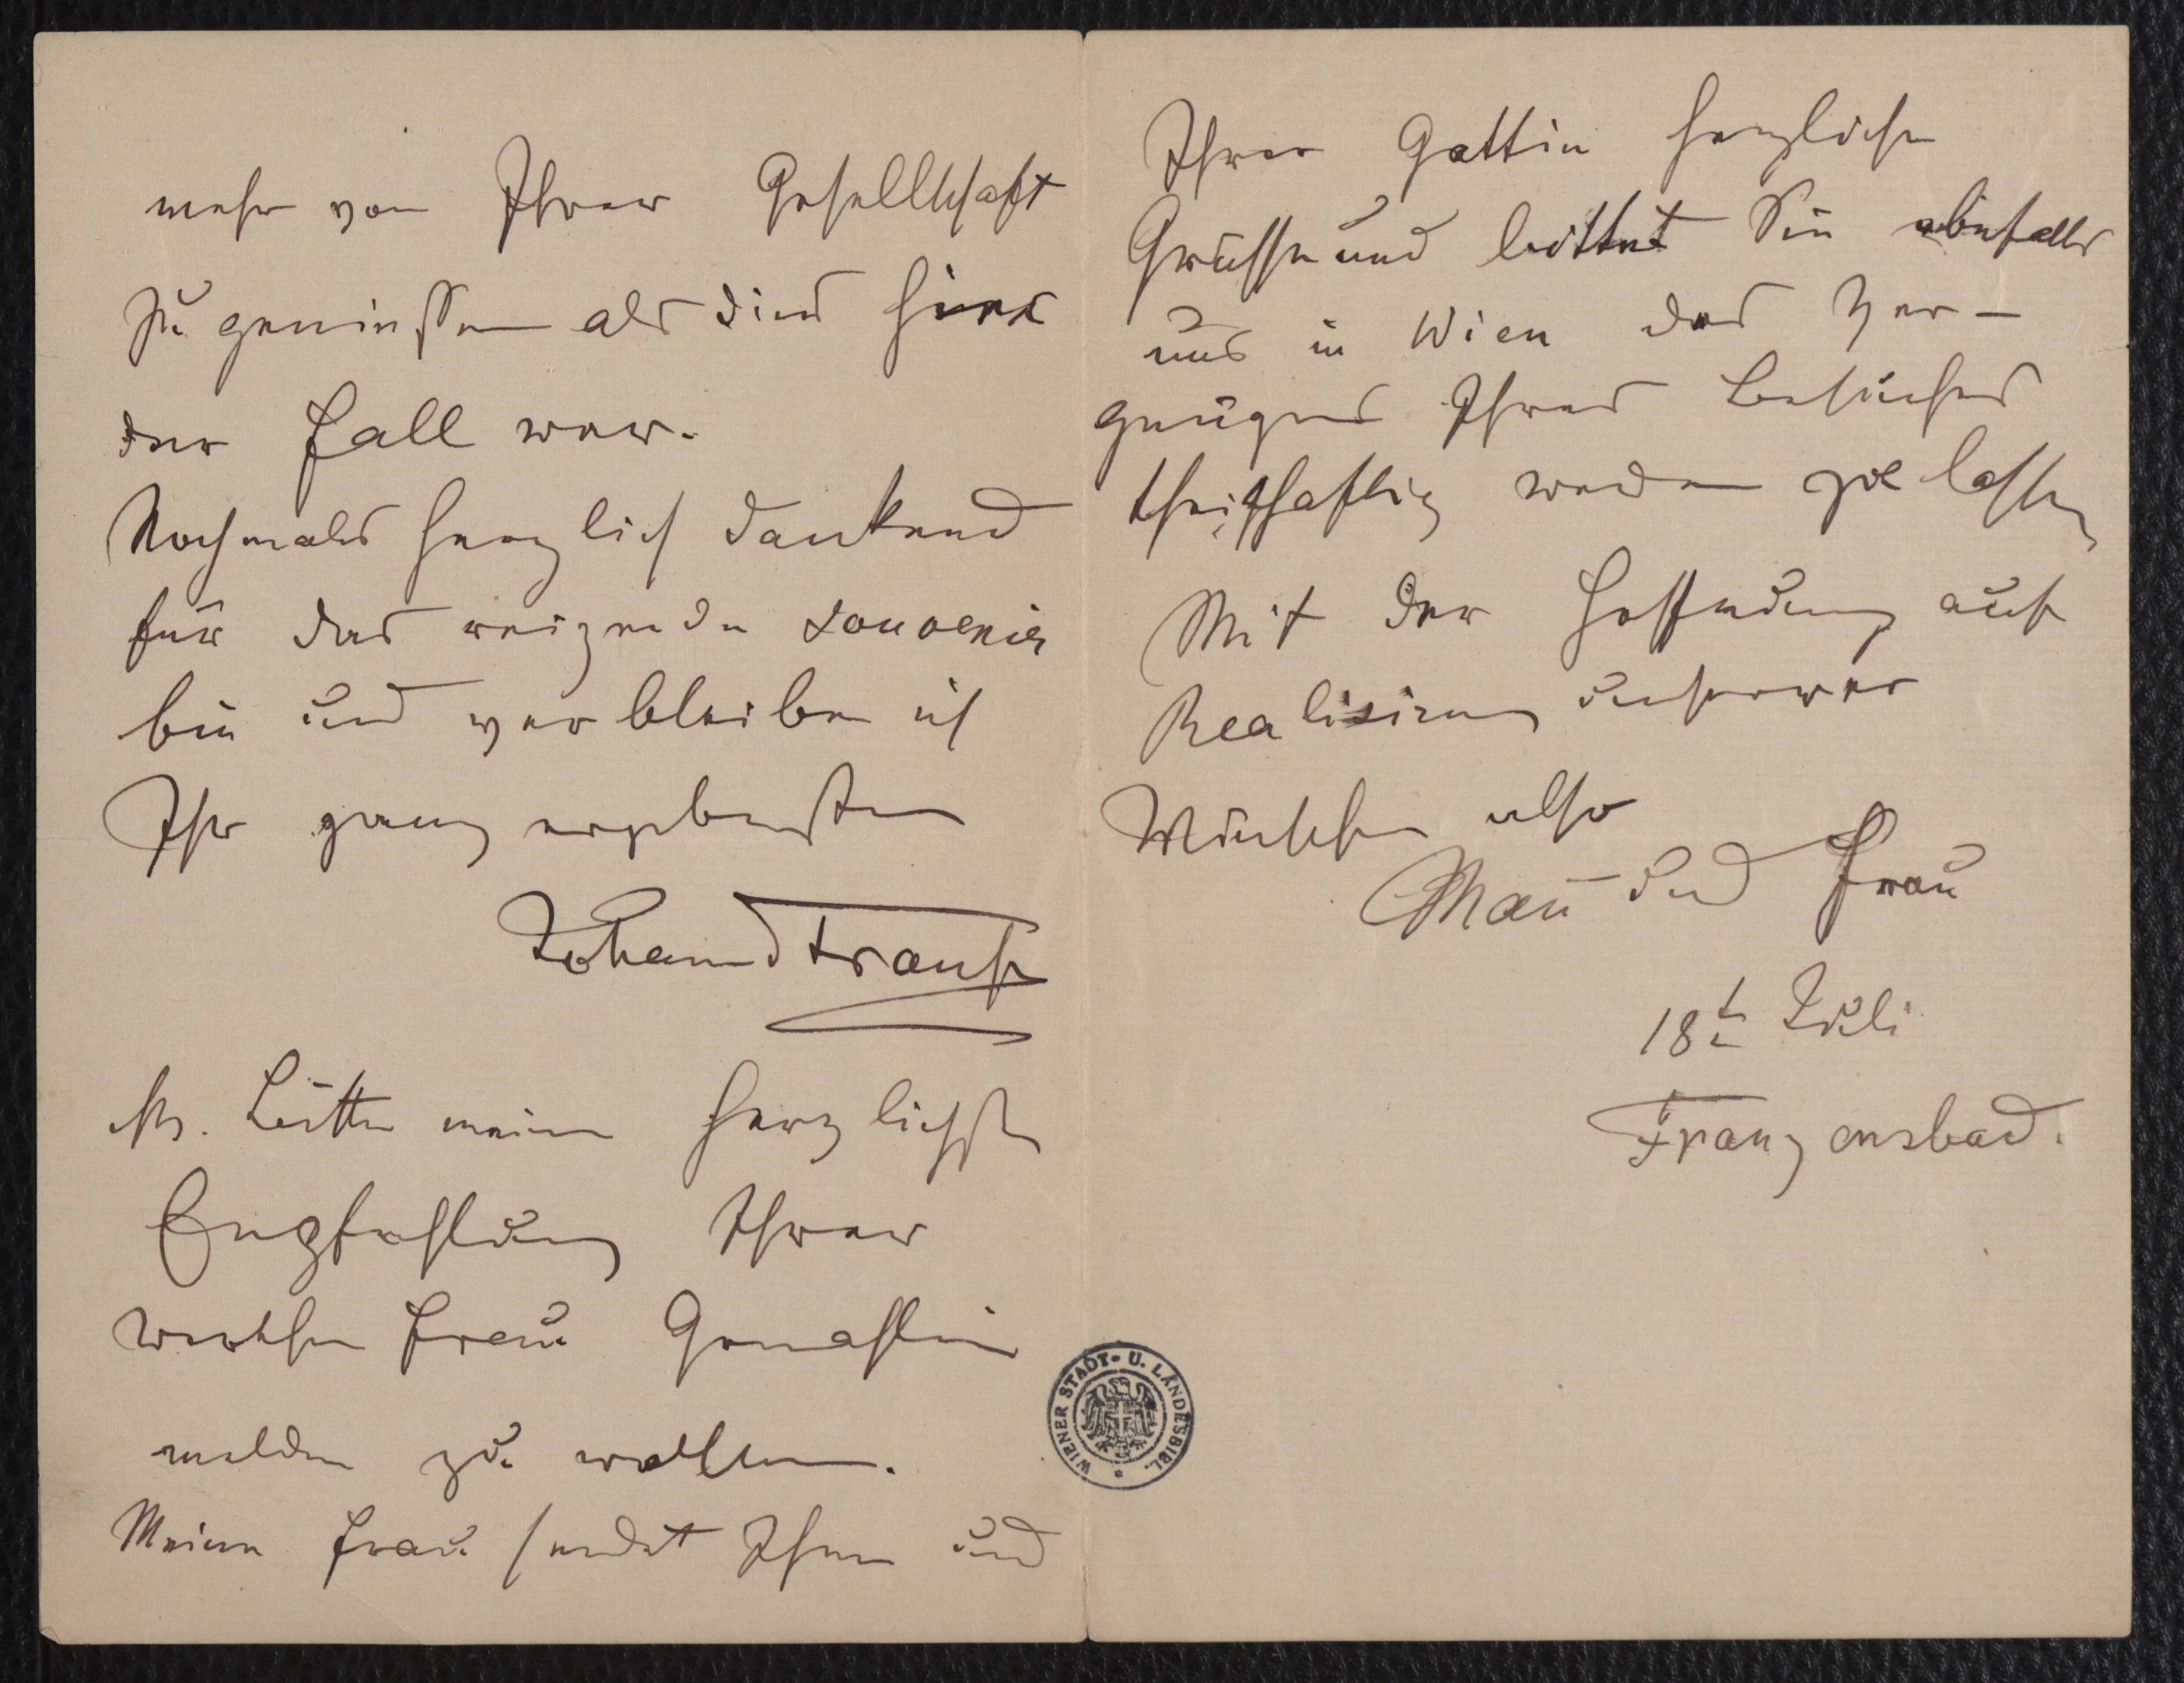 mehr von Ihrer Gesellschaft
zu genießen als dies hier
der Fall war.
Nochmals herzlich dankend
für das reizende Souvenir
bin und verbleibe ich
Ihr ganz ergebenster
Johann Strauß
Bitte meine herzlichste
Empfehlung Ihrer
werthen Frau Gemahlin
melden zu wollen.
Meine Frau sendet Ihnen und
Ihrer Gattin herzliche
Grüsse und bittet Sie ebenfalls
uns in Wien das Ver-
gnügen Ihres Besuches
theilhaftig werden zu lassen
Mit der Hoffnung auf
Realisirung unserer
Wünsche also
Mañ und Frau
18t Juli
Franzensbad.
WIENER STADT- U. LANDESBIBL.